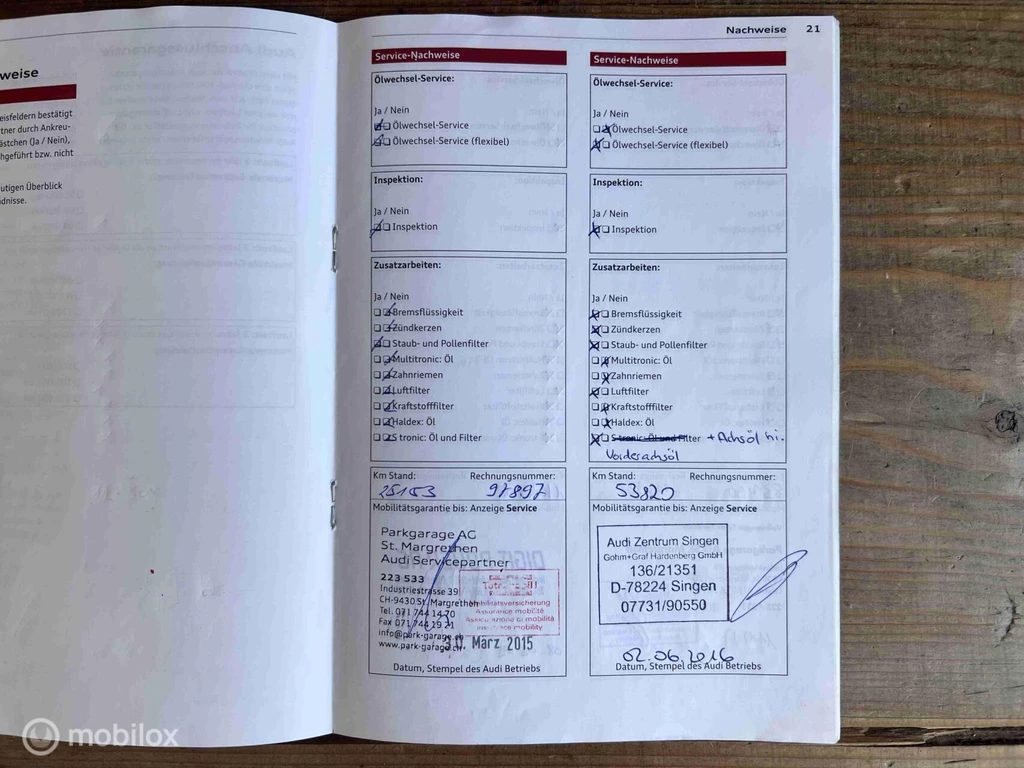 weise
eisfeldern bestätigt
tner durch Ankreu-
ästchen (Ja / Nein),
hgeführt bzw. nicht
utigen Überblick
dnisse.
Nachweise 21
Service-Nachweise
Ölwechsel-Service:
Ja / Nein
Ölwechsel-Service
Ölwechsel-Service (flexibel)
Inspektion:
Ja / Nein
Inspektion
Zusatzarbeiten:
Ja / Nein
Bremsflüssigkeit
Zündkerzen
Staub- und Pollenfilter
Multitronic: Öl
Zahnriemen
Luftfilter
Kraftstofffilter
Haldex: Öl
S tronic: Öl und Filter
Km Stand: Rechnungsnummer:
25153 97897
Mobilitätsgarantie bis: Anzeige Service
Parkgarage AG
St. Margrethen
Audi Servicepartner
223 533
Industriestrasse 39
CH-9430 St. Margrethen
Tel. 071 744 14 70
Fax 071 744 19 21
info@park-garage.ch
www.park-garage.ch
Mobilitätsversicherung
Assurance mobilité
Assicurazione di mobilità
Insurance mobility
30. März 2015
Datum, Stempel des Audi Betriebs
Service-Nachweise
Ölwechsel-Service:
Ja / Nein
Ölwechsel-Service
Ölwechsel-Service (flexibel)
Inspektion:
Ja / Nein
Inspektion
Zusatzarbeiten:
Ja / Nein
Bremsflüssigkeit
Zündkerzen
Staub- und Pollenfilter
Multitronic: Öl
Zahnriemen
Luftfilter
Kraftstofffilter
Haldex: Öl
S tronic: Öl und Filter + Achsöl hi.
Vorderachsöl
Km Stand: Rechnungsnummer:
53820
Mobilitätsgarantie bis: Anzeige Service
Audi Zentrum Singen
Gohm+Graf Hardenberg GmbH
136/21351
D-78224 Singen
07731/90550
02.06.2016
Datum, Stempel des Audi Betriebs
mobilox